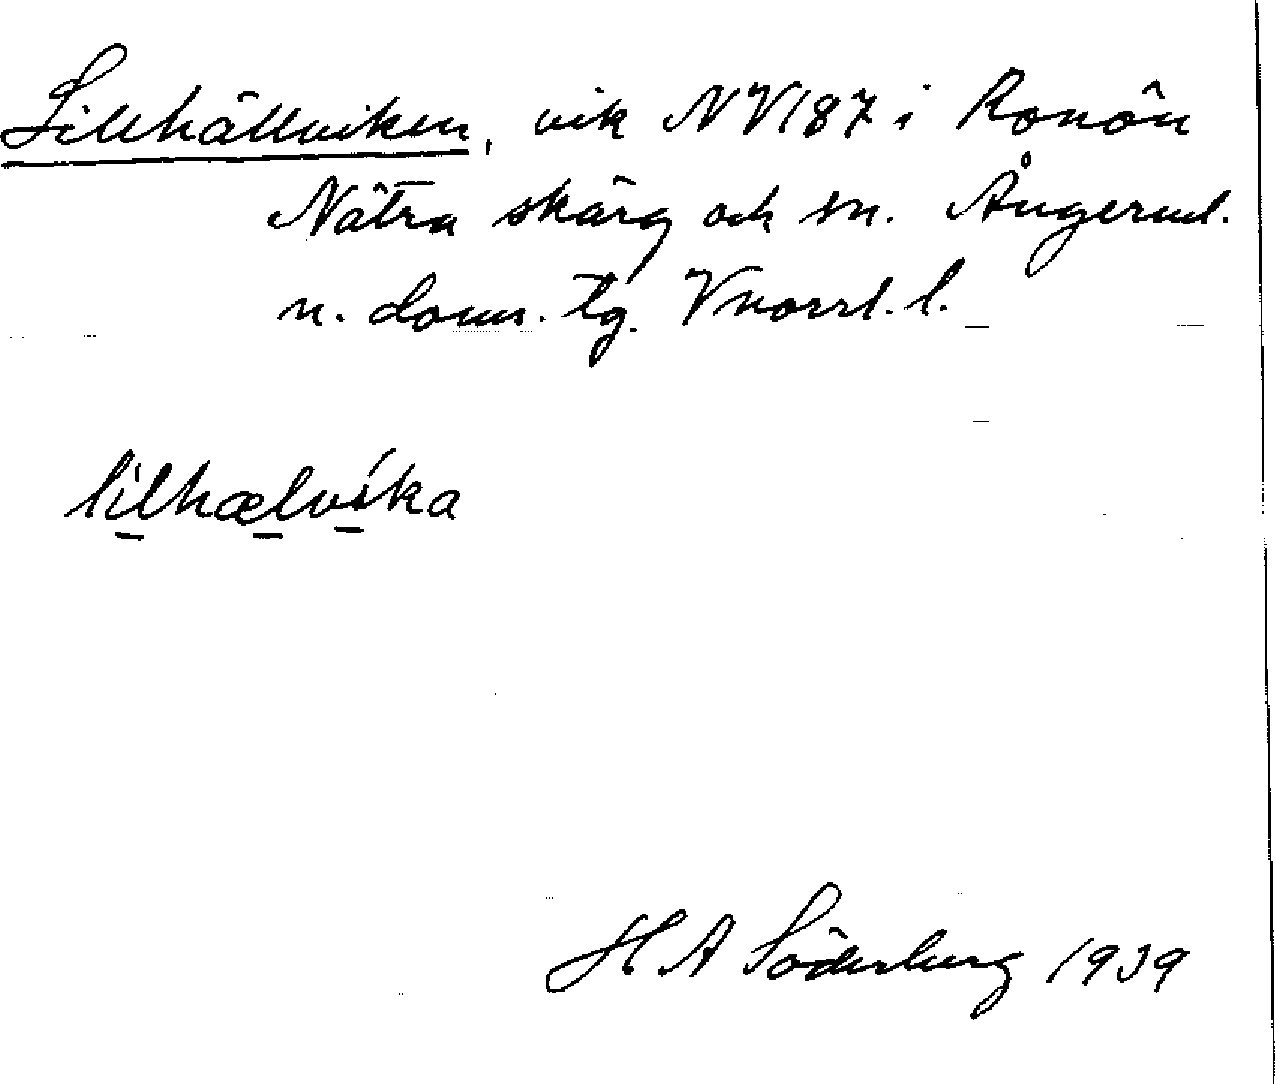 Lillhällviken, vik NV187 i Ronön
Nätra skärg och sn. Ångerml.
n. doms. tg. Vnorrl. l.
lilhælvíka
H A Söderberg 1939